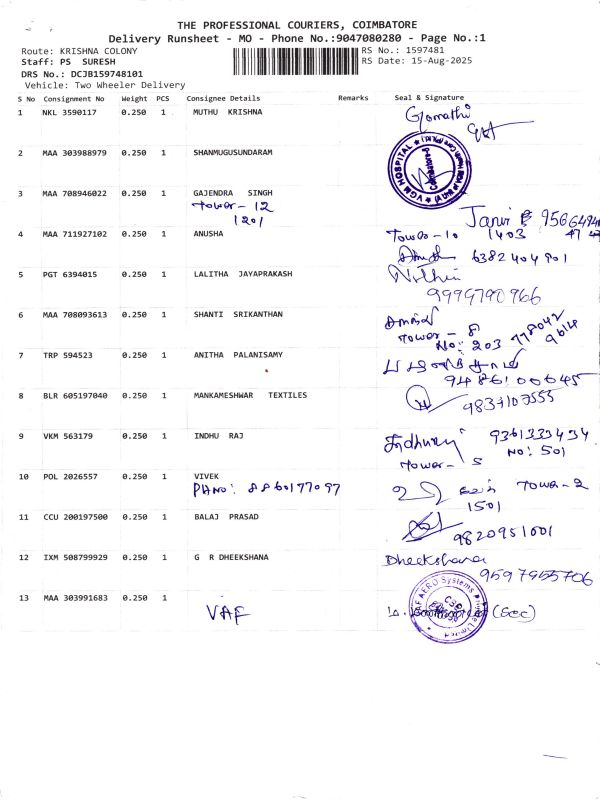 THE PROFESSIONAL COURIERS, COIMBATORE
Delivery Runsheet - MO - Phone No.:9047080280 - Page No.:1
Route: KRISHNA COLONY
RS No.: 1597481
Staff: PS SURESH
RS Date: 15-Aug-2025
DRS No.: DCJB159748101
Vehicle: Two Wheeler Delivery
S No Consignment No Weight PCS Consignee Details Remarks Seal & Signature
1 NKL 3590117 0.250 1 MUTHU KRISHNA Gomathi
2 MAA 303988979 0.250 1 SHANMUGUSUNDARAM
VGM HOSPITAL
3 MAA 708946022 0.250 1 GAJENDRA SINGH
Tower-12
1201
4 MAA 711927102 0.250 1 ANUSHA Tower-10 1403
6382404901
5 PGT 6394015 0.250 1 LALITHA JAYAPRAKASH Nithin
9999790966
6 MAA 708093613 0.250 1 SHANTI SRIKANTHAN
Tower-8
No: 203
7 TRP 594523 0.250 1 ANITHA PALANISAMY
9486100645
8 BLR 605197040 0.250 1 MANKAMESHWAR TEXTILES
9 VKM 563179 0.250 1 INDHU RAJ 9361333434
Tower-5 No: 501
10 POL 2026557 0.250 1 VIVEK Tower-2
PHNO: 8860177097 1501
11 CCU 200197500 0.250 1 BALAJ PRASAD
9820951001
12 IXM 508799929 0.250 1 G R DHEEKSHANA Dheekshana
9597955706
13 MAA 303991683 0.250 1
VAF (Sec)
AERO Systems Private Limited